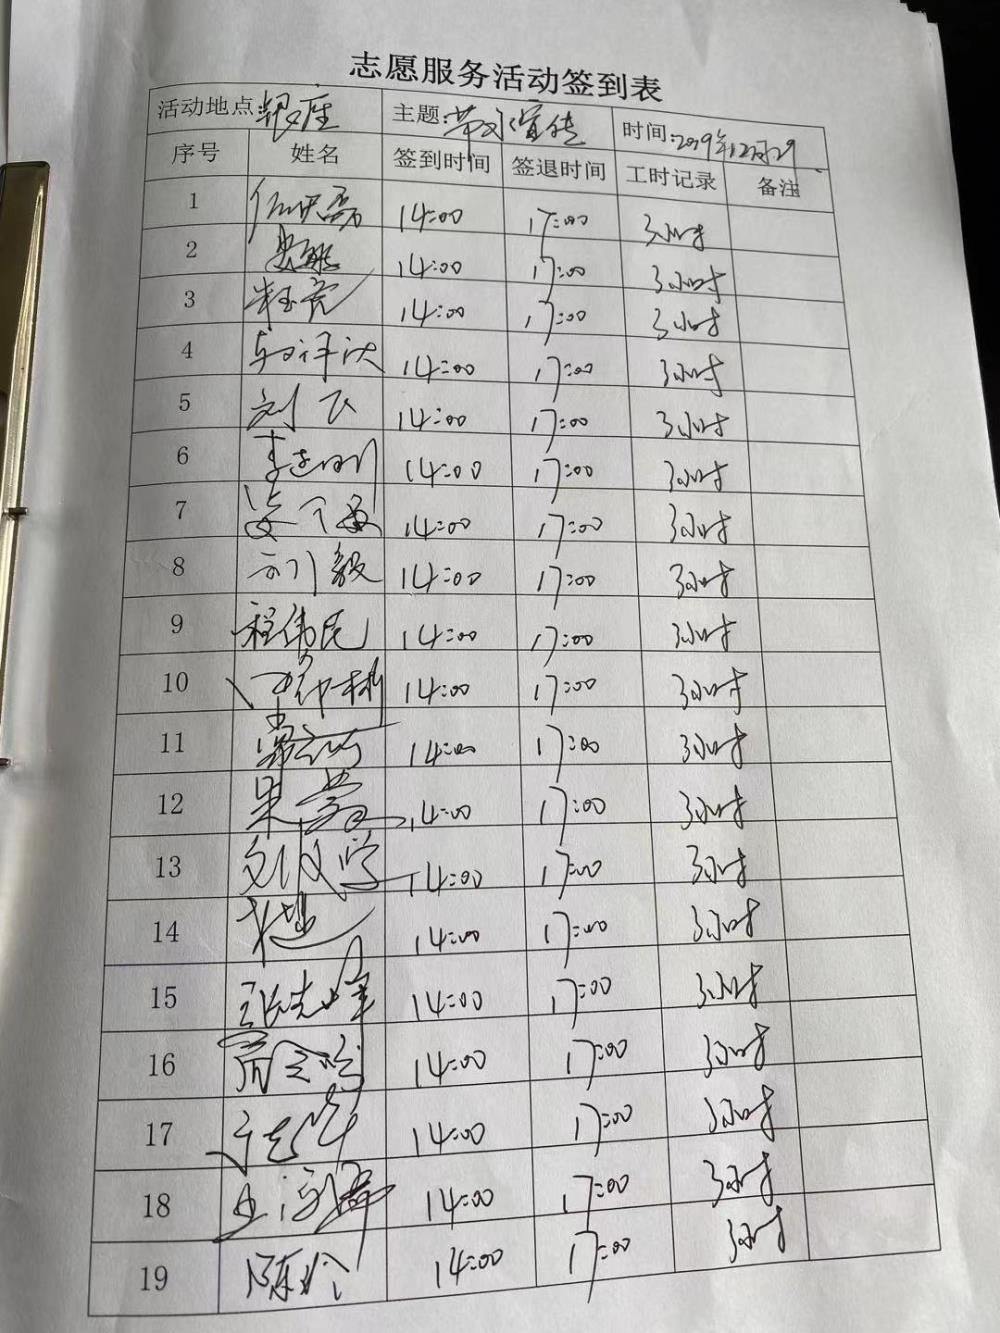 志愿服务活动签到表
活动地点 银座 主题: 宣传 时间:2019年12月29
序号 姓名 签到时间 签退时间 工时记录 备注
1 14:00 17:00 3小时
2 14:00 17:00 3小时
3 14:00 17:00 3小时
4 14:00 17:00 3小时
5 刘飞 14:00 17:00 3小时
6 14:00 17:00 3小时
7 14:00 17:00 3小时
8 14:00 17:00 3小时
9 程伟民 14:00 17:00 3小时
10 14:00 17:00 3小时
11 14:00 17:00 3小时
12 14:00 17:00 3小时
13 14:00 17:00 3小时
14 14:00 17:00 3小时
15 14:00 17:00 3小时
16 14:00 17:00 3小时
17 14:00 17:00 3小时
18 14:00 17:00 3小时
19 陈玲 14:00 17:00 3小时